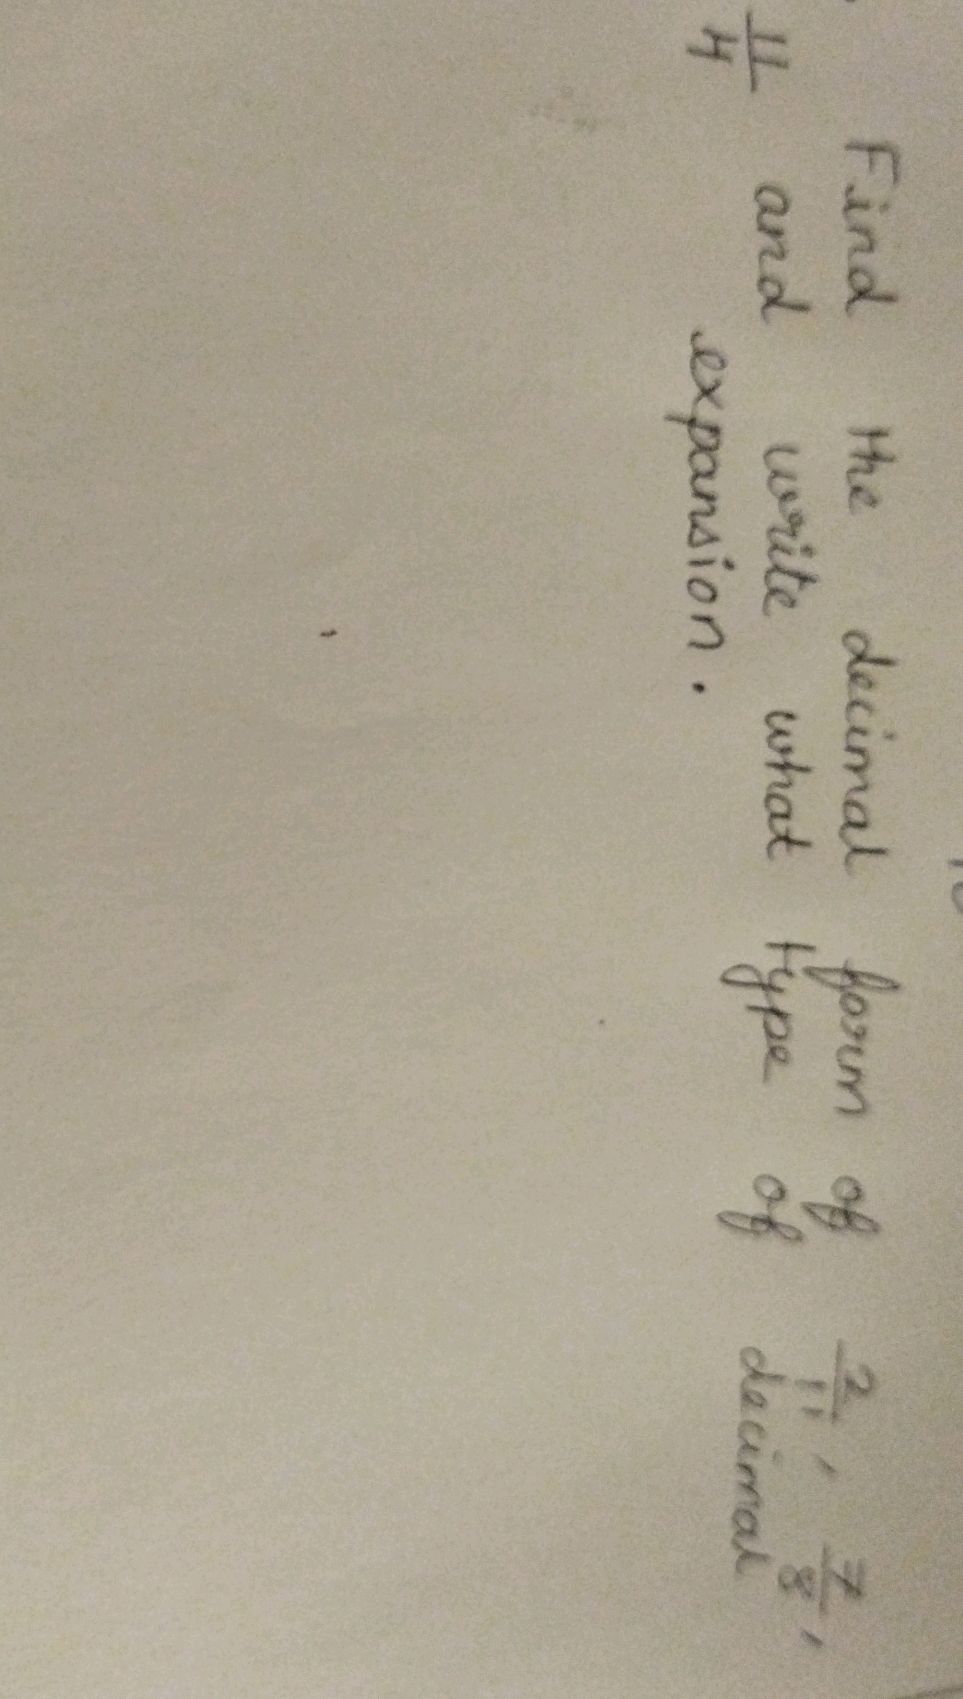 Find the decimal form of 2/11, 7/8,
11/4 and write what type of decimal
expansion.